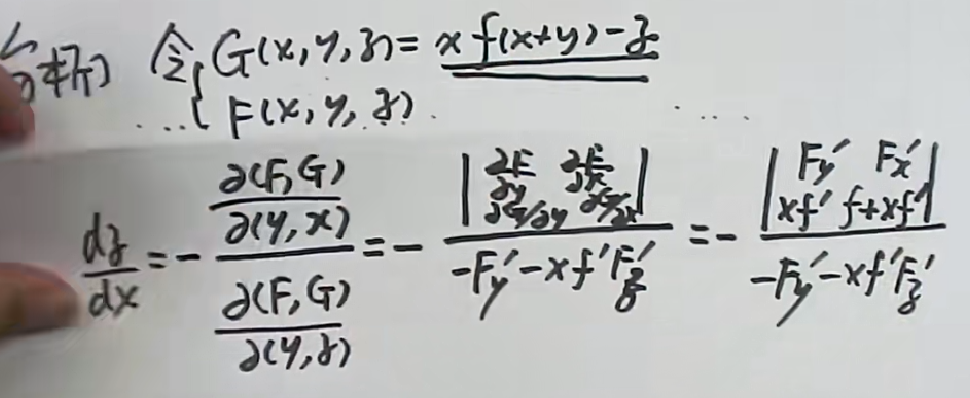 分析 令 { G(x,y,z)= x f(x+y)-z
F(x,y,z)
dz/dx = - (∂(F,G)/∂(y,x)) / (∂(F,G)/∂(y,z)) = - |∂F/∂y ∂F/∂x; ∂G/∂y ∂G/∂x| / (-Fy'-xf'Fz') = - |Fy' Fx'; xf' f+xf'| / (-Fy'-xf'Fz')